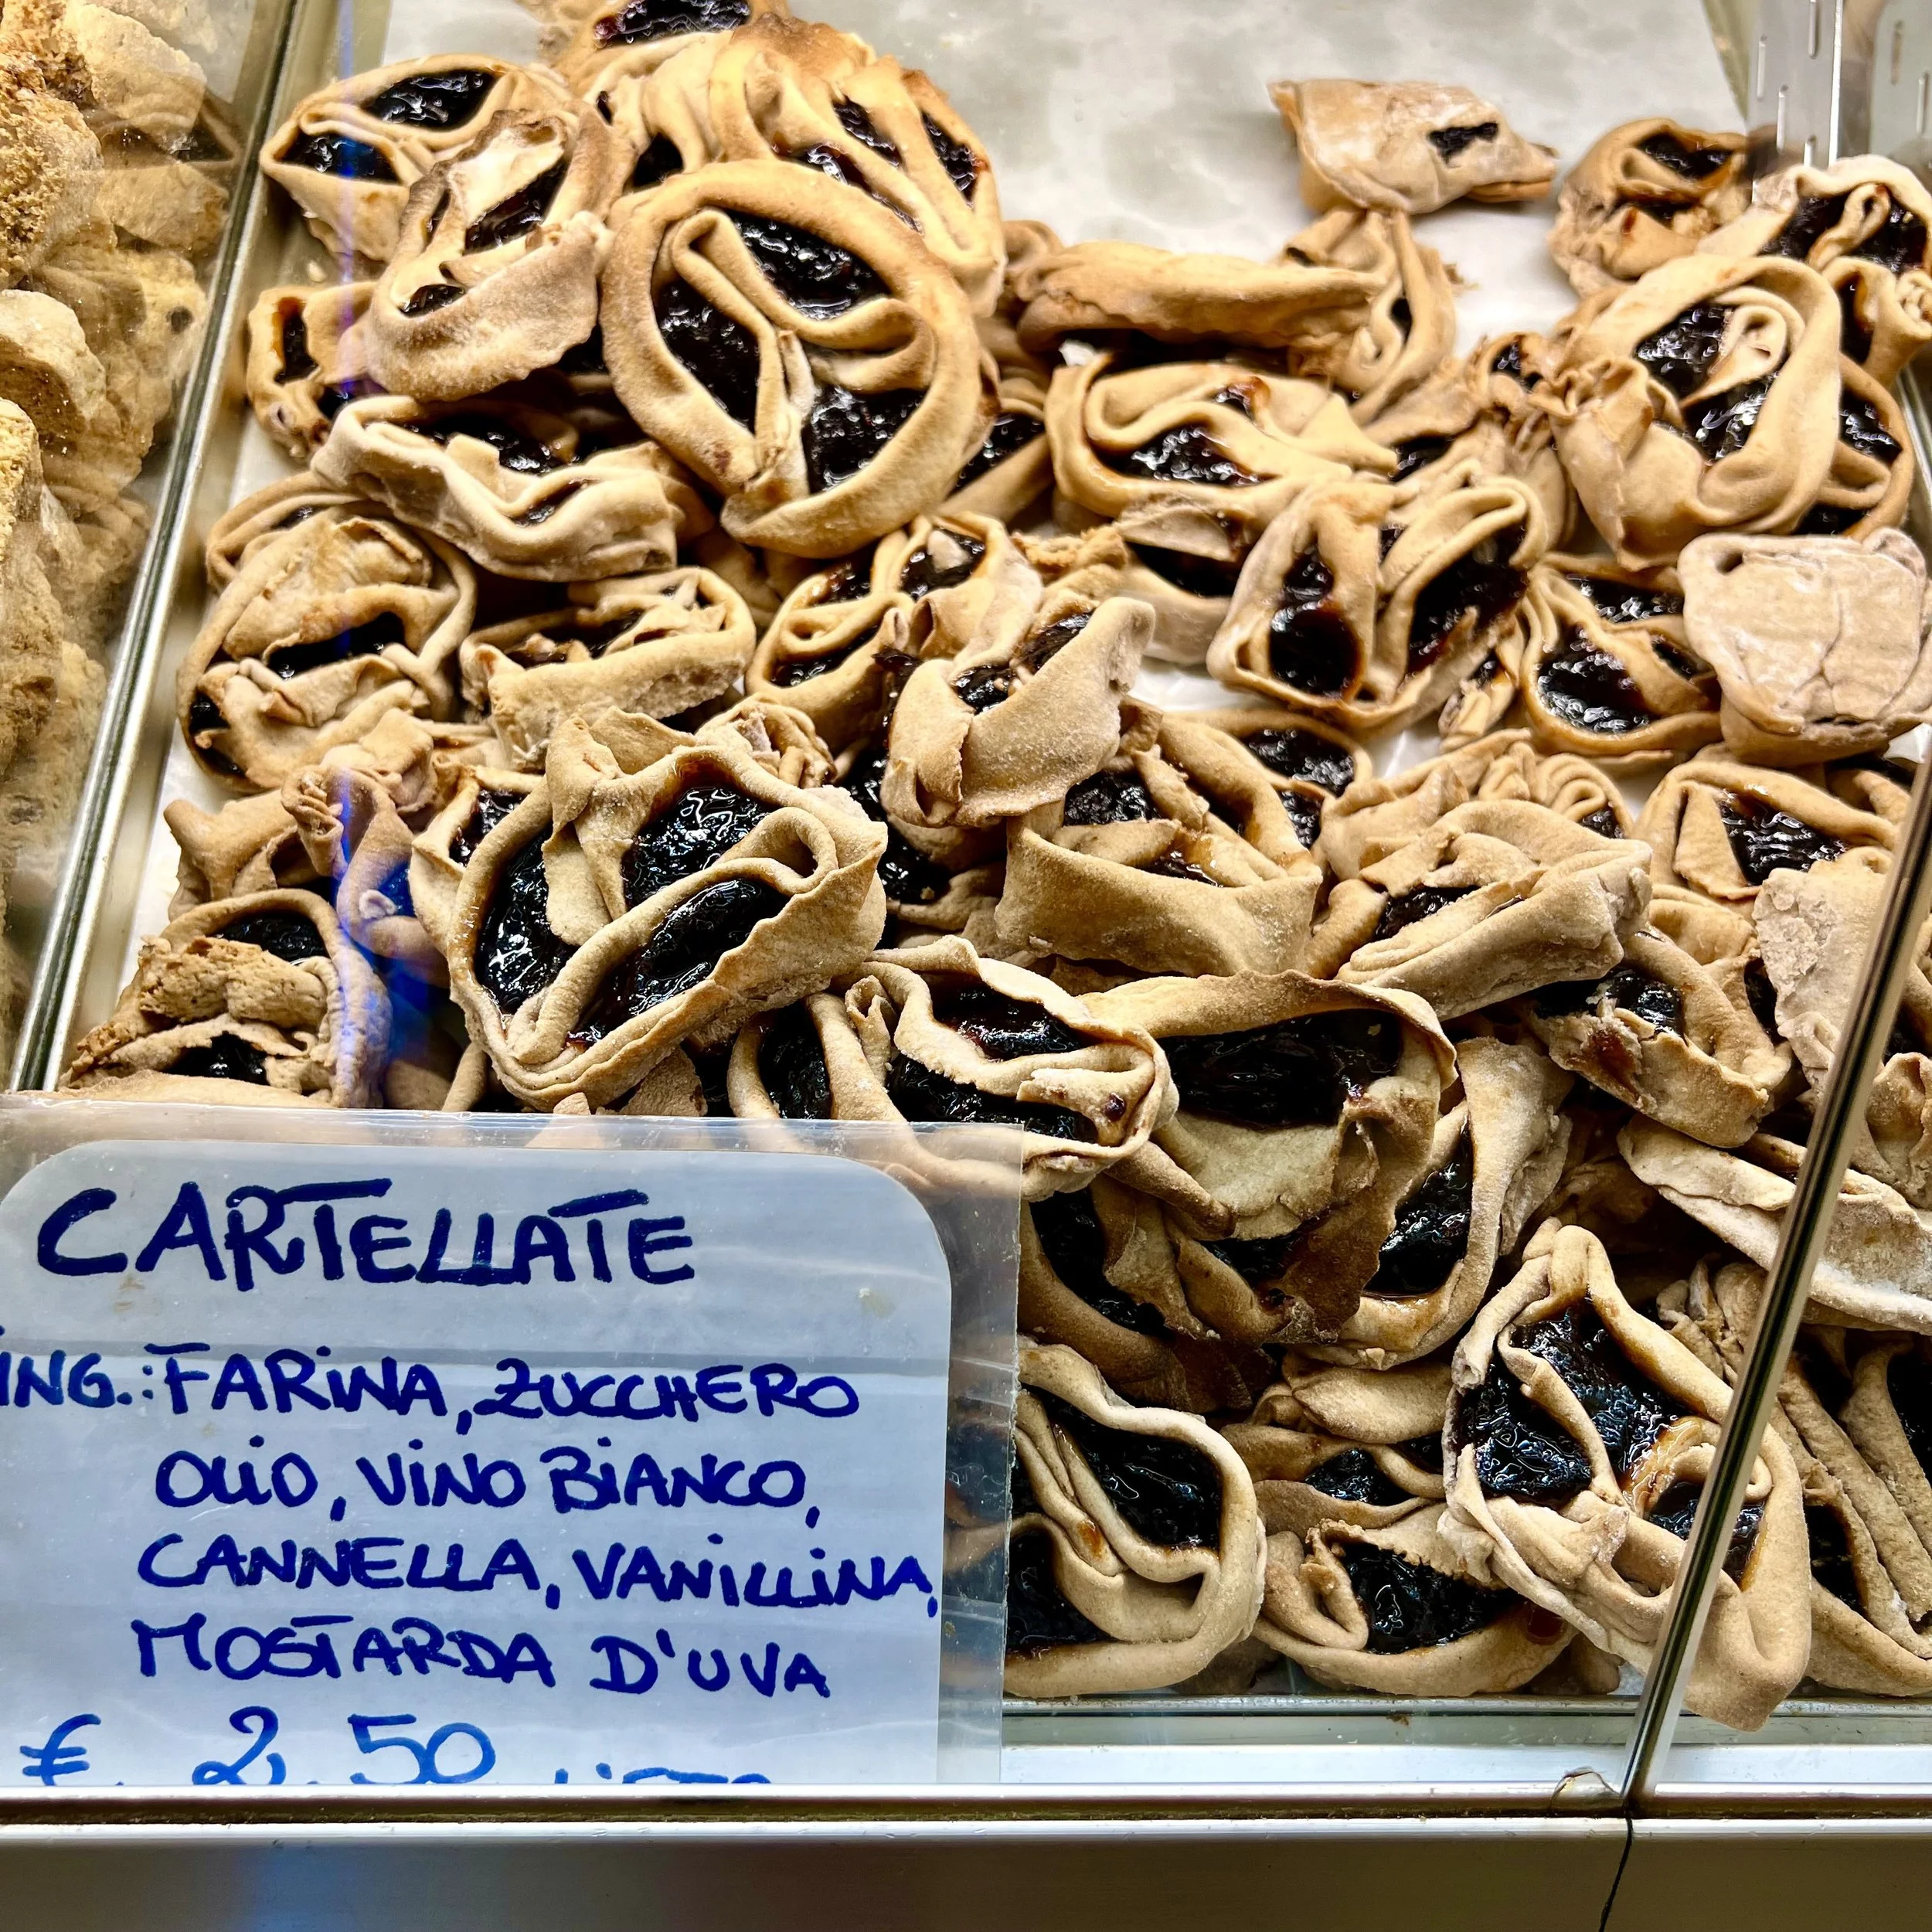 CARTELLATE
ING.: FARINA, ZUCCHERO
OLIO, VINO BIANCO,
CANNELLA, VANILLINA,
MOSTARDA D'UVA
€. 2,50